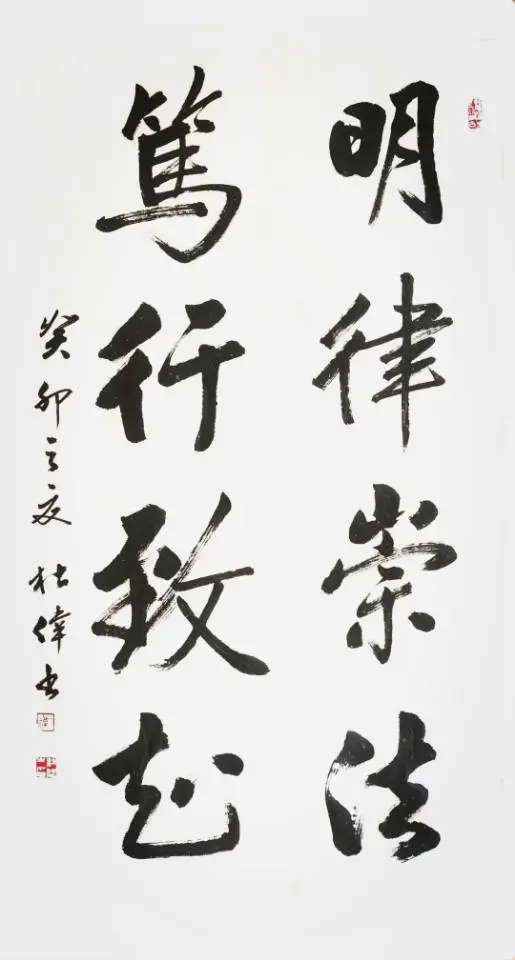 明律崇法
篤行致遠
癸卯之夏 杜偉书